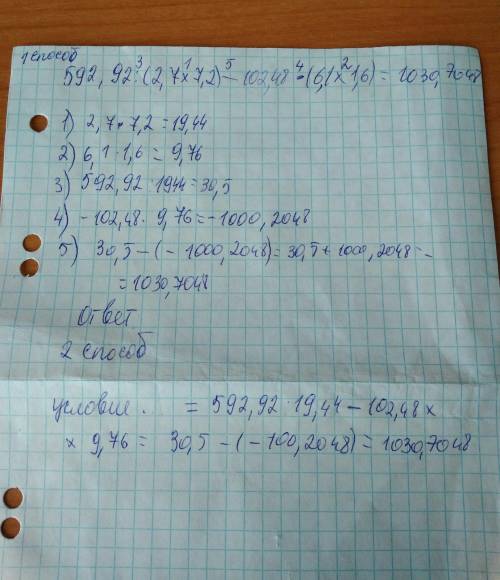 1 способ
592,92:³(2,7x¹7,2)⁵—102,48⁴·(6,1x²1,6)=1030,7048
1) 2,7·7,2=19,44
2) 6,1·1,6=9,76
3) 592,92:1944=30,5
4) -102,48·9,76=-1000,2048
5) 30,5-(-1000,2048)=30,5+1000,2048=
=1030,7048
Ответ
2 способ
условие. =592,92:19,44-102,48x
x9,76= 30,5-(-100,2048)=1030,7048